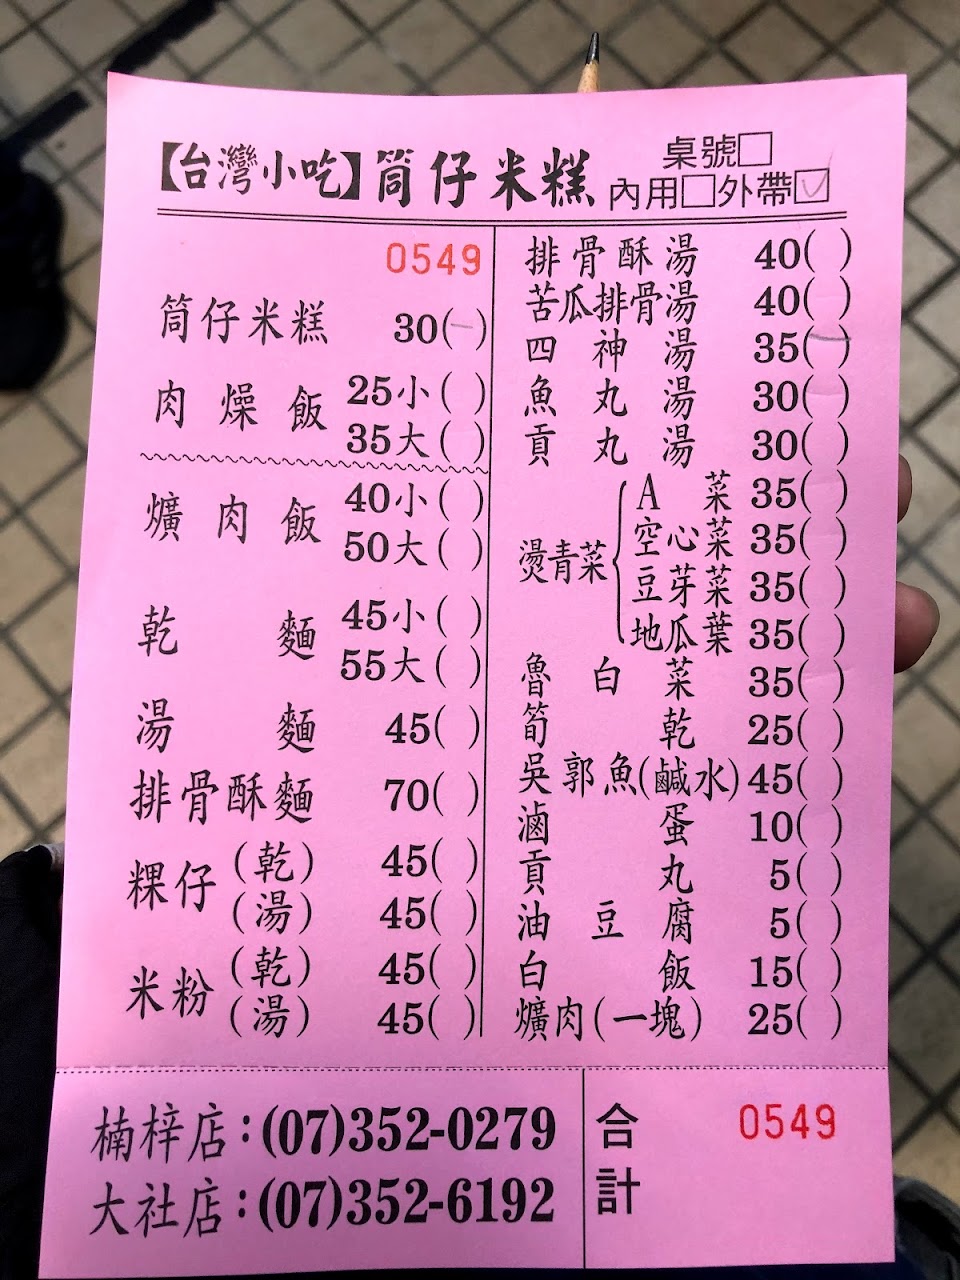 【台灣小吃】筒仔米糕
桌號□
內用□外帶☑
0549
筒仔米糕 30(一)
肉燥飯 25小( )
35大( )
爌肉飯 40小( )
50大( )
乾麵 45小( )
55大( )
湯麵 45( )
排骨酥麵 70( )
粿仔(乾) 45( )
(湯) 45( )
米粉(乾) 45( )
(湯) 45( )
排骨酥湯 40( )
苦瓜排骨湯 40( )
四神湯 35(一)
魚丸湯 30( )
貢丸湯 30( )
燙青菜
A菜 35( )
空心菜 35( )
豆芽菜 35( )
地瓜葉 35( )
魯白菜 35( )
筍乾 25( )
吳郭魚(鹹水) 45( )
滷蛋 10( )
貢丸 5( )
油豆腐 5( )
白飯 15( )
爌肉(一塊) 25( )
楠梓店:(07)352-0279
大社店:(07)352-6192
合計
0549